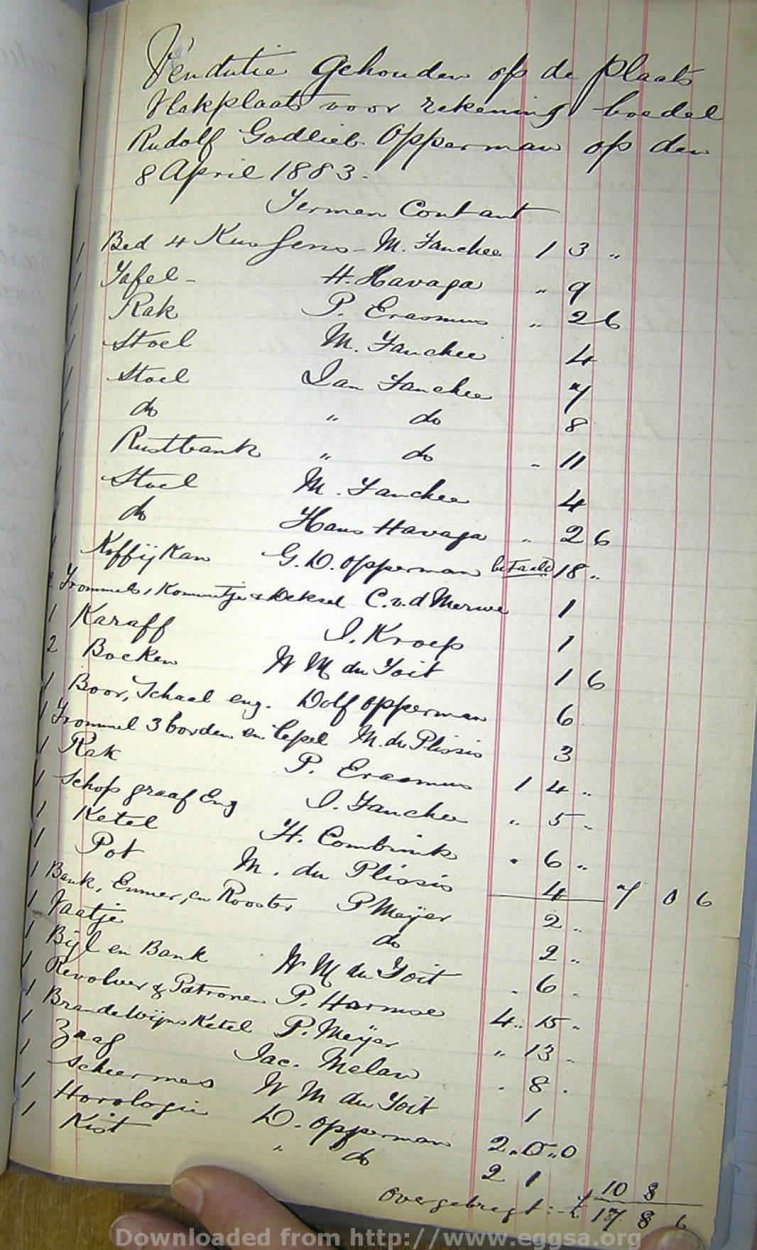 Vendutie Gehouden op de plaats
Vlakplaats voor rekening boedel
Rudolf Godlieb Opperman op den
8 April 1883.
Termen Contant
1 Bed 4 Kussens - M. Fanchee 1 3 "
1 Tafel - H. Havaga " 9
1 Rak P. Erasmus " 2 6
1 Stoel M. Fanchee 4
1 Stoel Jan Fanchee 7
1 do " do 8
1 Rustbank " do " 11
1 Stoel M. Fanchee 4
1 do Hans Havaga " 2 6
1 Koffij Kan G. D. Opperman betaald 18 "
2 Trommels, Kommetje & Deksel C. v. d Merwe 1
1 Karaff J. Kroep 1
2 Boeken W M du Toit 1 6
1 Boor, Schaal eng. Dolf Opperman 6
1 Trommel 3 borden en lepel M. du Plissis 3
1 Rak P. Erasmus 1 4 "
1 Schop graaf Eng J. Fanchee " 5 "
1 Ketel H. Combrink " 6 "
1 Pot M. du Plissis 4 7 0 6
1 Bank, Emmer, en Rooster P Meyer 2 "
1 Vaatje do 2 "
1 Bijl en Bank W M du Toit " 6 "
1 Revolver & Patronen P. Harmse 4 " 15 "
1 Brandewijns Ketel P. Meyer " 13 "
1 Zaag Jac. Melan " 8 "
1 Scheermes W M du Toit 1
1 Horologie D. Opperman 2 " 0 " 0
1 Kist " do 2 1 10 8
overgebragt :- £ 17 8 6
Downloaded from http://www.eggsa.org